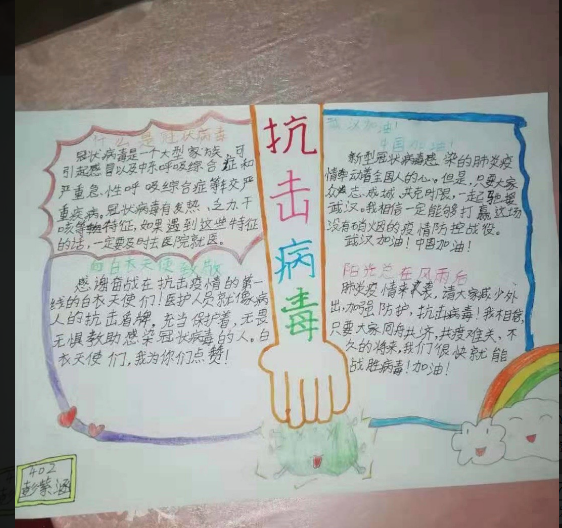 什么是冠状病毒
冠状病毒是一个大型家族，可
引起感冒以及中东呼吸综合症和
严重急性呼吸综合症等较严
重疾病。冠状病毒有发热、乏力干
咳等特征，如果遇到这些特征
的话，一定要及时去医院就医。
向白衣天使致敬
感谢奋战在抗击疫情的第一
线的白衣天使们！医护人员就像病
人的抗击盾牌，充当保护着，无畏
无惧救助感染冠状病毒的人，白
衣天使们，我为你们点赞！
抗
击
病
毒
武汉加油！
中国加油！
新型冠状病毒感染的肺炎疫
情牵动着全国人的心。但是，只要大家
众志成城，共克时限，一起驰援
武汉。我相信一定能够打赢这场
没有硝烟的疫情防控战役。
武汉加油！中国加油！
阳光总在风雨后
肺炎疫情来袭，请大家减少外
出，加强防护，抗击病毒！我不相信，
只要大家同舟共济，共疫难关，不
久的将来，我们很快就能
战胜病毒！加油！
402
彭紫涵